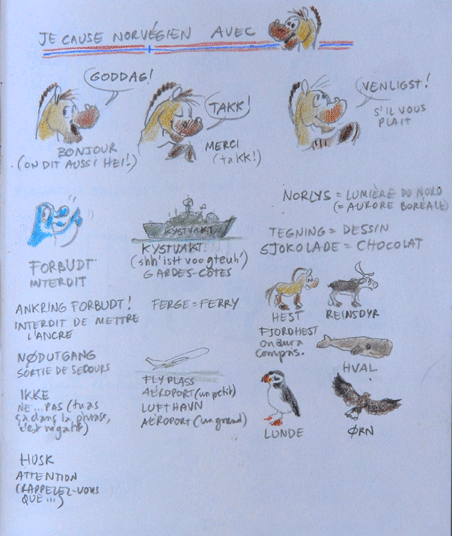 JE CAUSE NORVÉGIEN AVEC
GODDAG!
BONJOUR
(ON DIT AUSSI HEI!)
TAKK!
MERCI
(takk!)
VENLIGST!
S'IL VOUS
PLAIT
FORBUDT
INTERDIT
KYSTVAKT
KYSTVAKT
(shh'istt voogteuh')
GARDES-CÔTES
NORLYS = LUMIÈRE DU NORD
(= AURORE BORÉALE)
TEGNING = DESSIN
SJOKOLADE = CHOCOLAT
ANKRING FORBUDT!
INTERDIT DE METTRE
L'ANCRE
FERGE = FERRY
HEST
FJORDHEST
on aura
compris.
REINSDYR
HVAL
NØDUTGANG
SORTIE DE SECOURS
FLYPLASS
AÉROPORT (un petit)
LUFTHAVN
AÉROPORT (un grand)
IKKE
NE ... PAS (tu as
ça dans la phrase,
c'est négatif)
LUNDE
ØRN
HUSK
ATTENTION
(RAPPELEZ-VOUS
QUE ...)